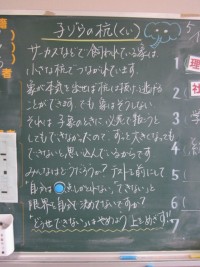 子ゾウの杭(くい)
サーカスなどで飼われている象は
小さな杭でつながれています。
象が本気を出せば杭は抜け、逃げる
ことができます。でも象はそうしない
それは子象のときに必死で抜こうと
してもできなかったので、ずっと大きくなっても
できないと思い込んでいるからです
みんなはどうだろう?テスト前にして
"自分は
できない"と
限界を自分で決めてないですか?
"どうせできない"はやめよう 上をめざす!!
理
社
1
2
3
4
5
6
7